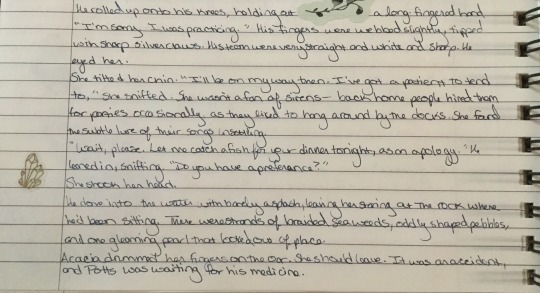 He rolled up onto his knees, holding out a long fingered hand
"I'm sorry. I was practicing." His fingers were webbed slightly, tipped
with sharp silver claws. His teeth were very straight and white and sharp. He
eyed her.
She tilted her chin. "I'll be on my way then. I've got a patient to tend
to," she sniffed. She wasn't a fan of sirens - back home people hired them
for parties occasionally, as they liked to hang around by the docks. She found
the subtle lure of their songs unsettling.
"Wait, please. Let me catch a fish for your dinner tonight, as an apology." He
leaned in, sniffing. "Do you have a preference?"
She shook her head.
He dove into the water with hardly a splash, leaving her staring at the rock where
he'd been sitting. There were strands of braided seaweeds, oddly shaped pebbles,
and one gleaming pearl that looked out of place.
Acacia drummed her fingers on the oar. She should leave. It was an accident,
and Potts was waiting for his medicine.